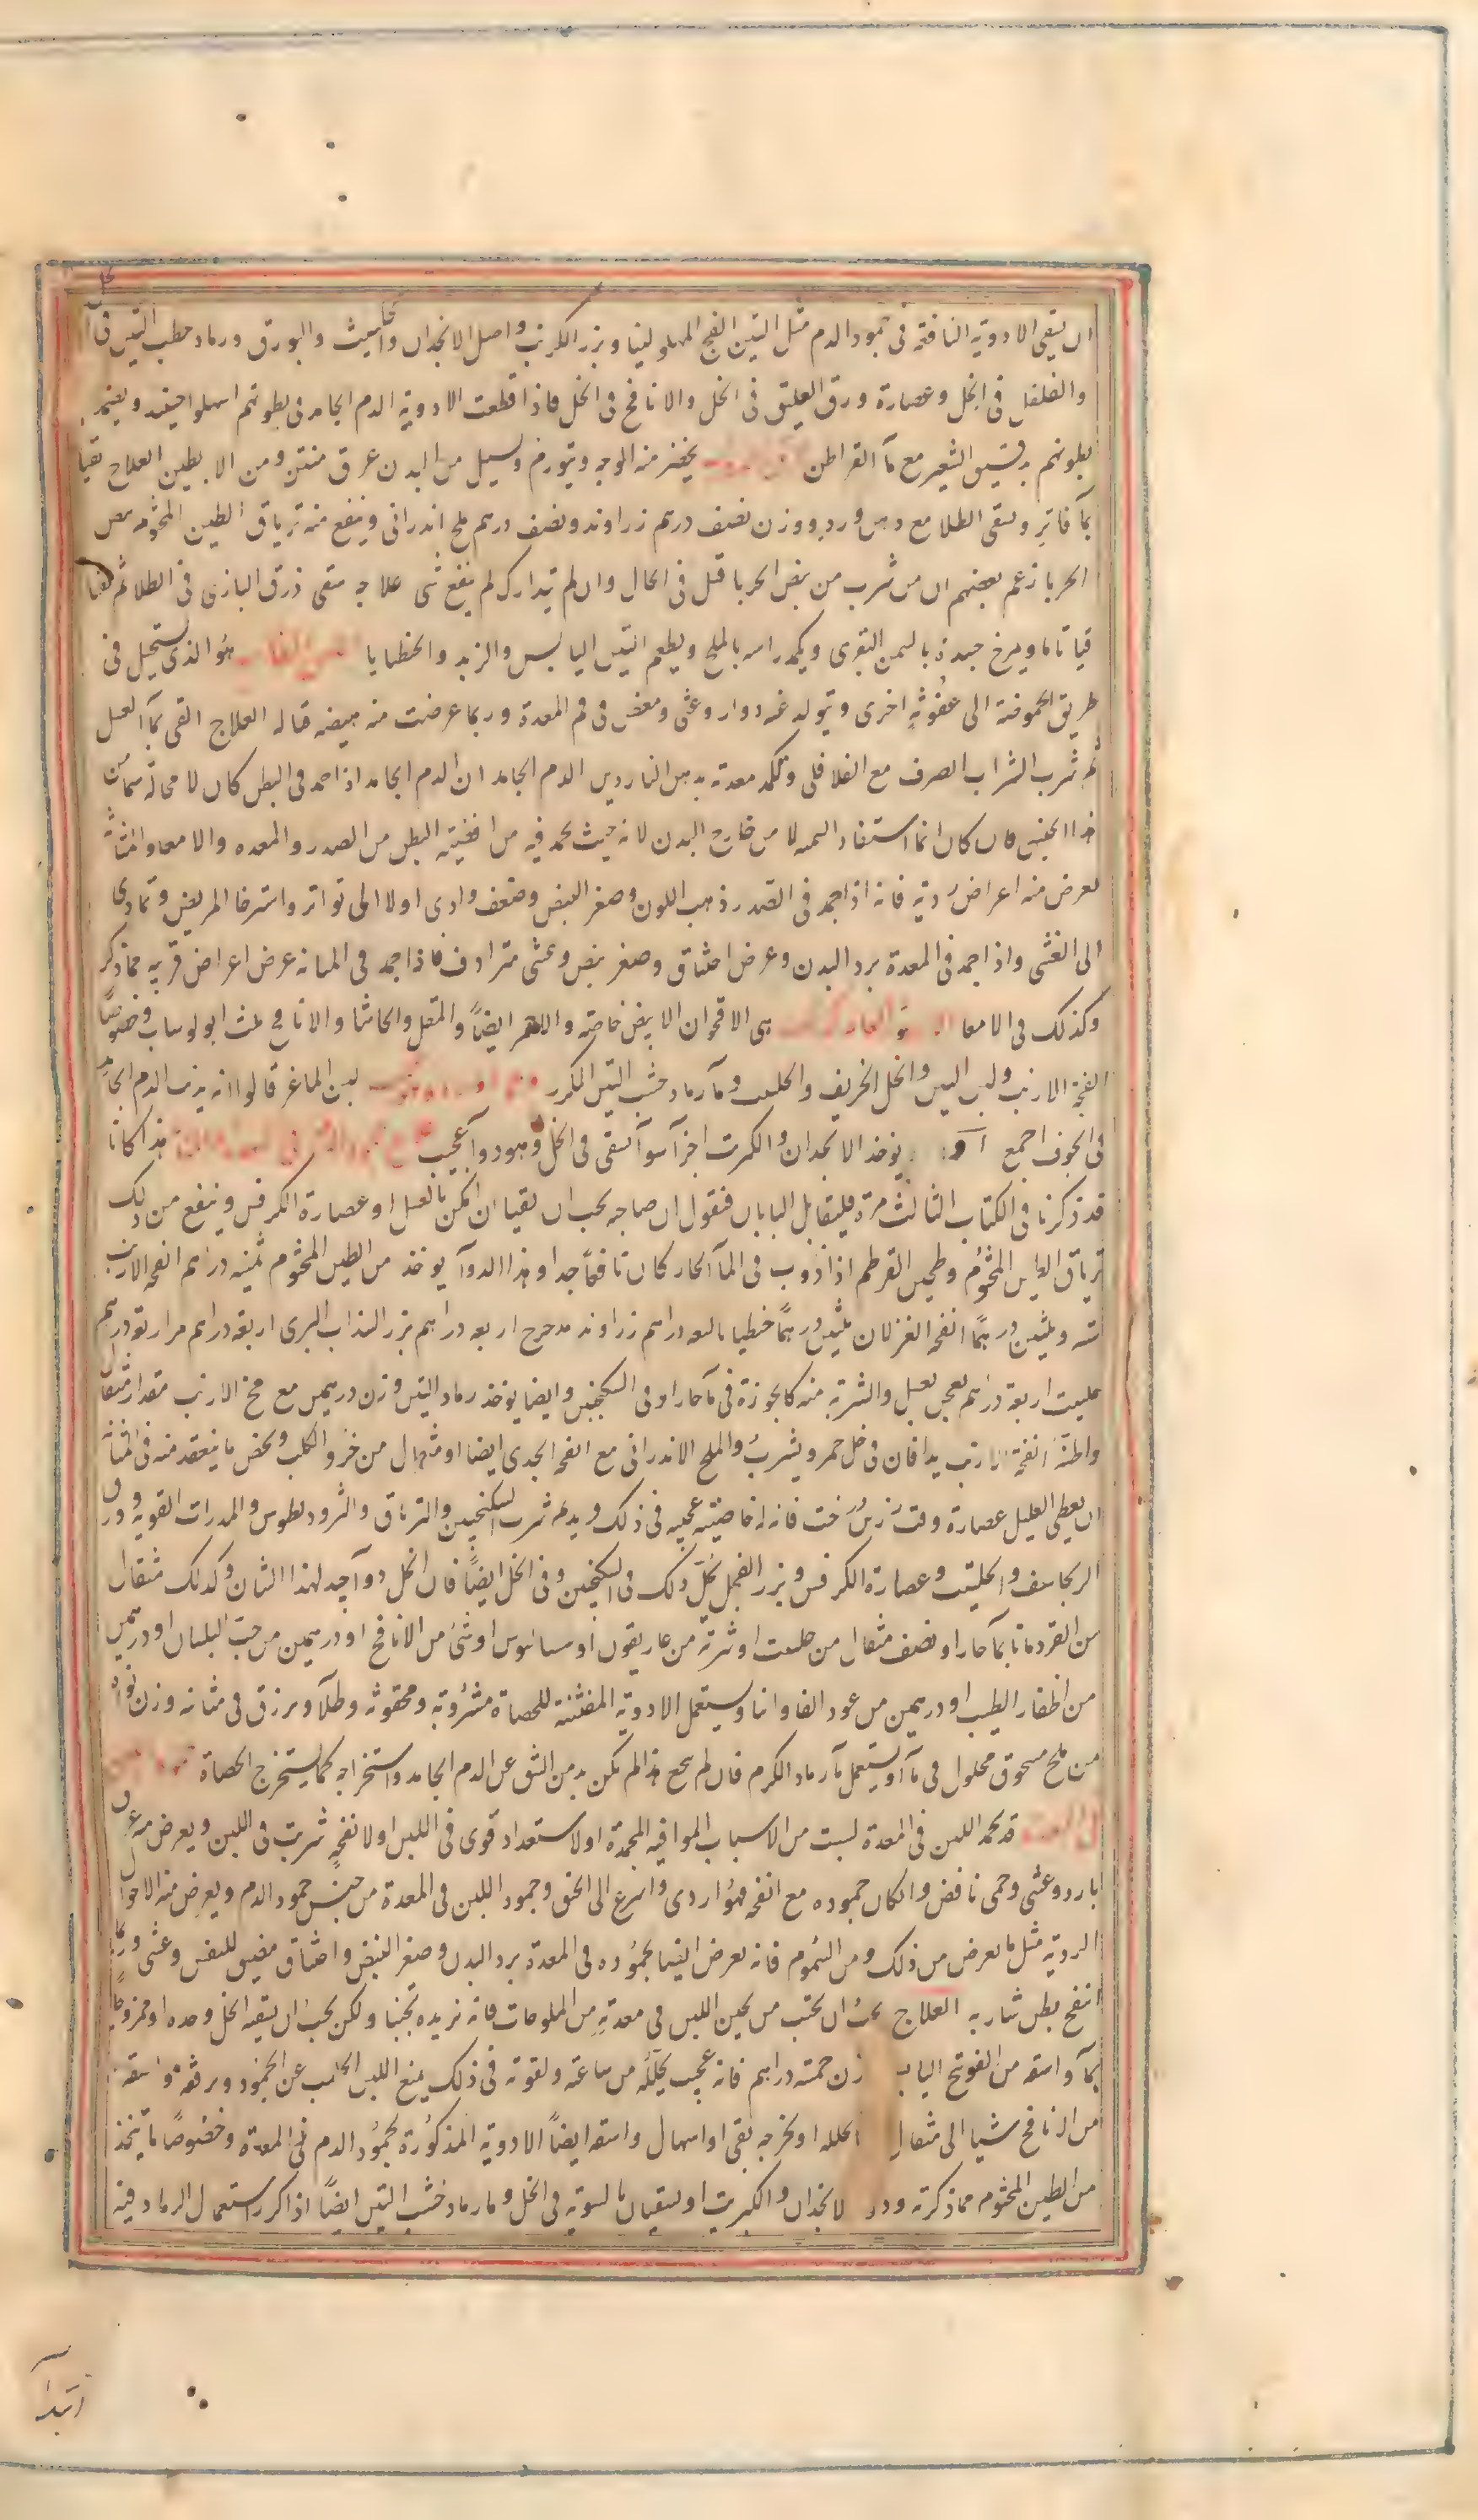 ان يسقى الادوية النافعة فى جمود الدم مثل التين الفج المملو لبنا وبزر الكرنب واصل الانجدان والحلتيت والبورق ورماد حطب التين فى
والفلفل فى الخل وعصارة ورق العليق فى الخل والانافح فى الخل فاذا قطعت الادوية الدم الجامد فى بطونهم اسهلوا حينئذ ويضمد
بطونهم بدقيق الشعير مع مآ القراطن يخضر منه الوجه ويتورم ويسيل من البدن عرق منتن ومن الابطين العلاج يقيا
بمآ فاتر ويسقى الطلا مع دهن ورد ووزن نصف درهم زراوند ونصف درهم ملح اندرانى وينفع منه ترياق الطين المختوم بيض
الحربا زعم بعضهم ان من شرب من بيض الحربا قتل فى الحال وان لم يتدارك لم ينفع شى علاجه يسقى ذرق البازى فى الطلا ثم يقيا
قيا تاما ويمرخ جسده بالسمن البقرى ويكمد راسه بالملح ويطعم التين اليابس والزبد والخطيايا هو الذى يستحيل فى
طريق الحموضة الى عفونة اخرى ويتولد عنه دوار وغشى ومغص فى فم المعدة وربما عرضت منه هيضه قتاله العلاج القى بمآ العسل
ثم شرب الشراب الصرف مع الفلافلى وتكمد معدته بدهن الناردين الدم الجامد ان الدم الجامد اذا جمد فى البطن كان لا محالة سما من
هذا الجنس فان كان انما استفاد السمية لا من خارج البدن لانه حيث يجمد فيه من افضية البطن من الصدر والمعده والامعا والمثانة
يعرض منه اعراض ردية فانه اذا جمد فى الصدر ذهب اللون وصغر النبض وضعف وادى اولا الى تواتر واسترخا المريض وتمادى
الى الغشى واذا جمد فى المعدة برد البدن وعرض اختناق وصغر نبض وغشى مترادف فاذا جمد فى المثانه عرض اعراض قريبه مما ذكر
وكذلك فى الامعا هى الاقحوان الابيض خاصة والاحمر ايضاً والمقل والحاشا والانافح وخصوصًا
انفحة الارنب ولبن التين والخل الحريف والحلتيت ومآ رماد خشب التين المكرر لبن الماعز قالوا انه يذيب الدم الجامد
فى الجوف اجمع يوخذ الانجدان والكبريت اجزآ سوآ يسقى فى الخل وهو دوآ عجيب هذا كانا
قد ذكرنا فى الكتاب الثالث مرة فليتقابل البابان فنقول ان صاحبه يجب ان يقيا ان امكن بالعسل او عصارة الكرفس وينفع من ذلك
ترياق الطين المختوم وطحين القرطم اذا ذوب فى المآ الحار كان نافعًا جدا وهذا الدوآ يوخذ من الطين المختوم ثمنيه دراهم انفحة الارنب
ستة وثلثين درهمًا انفحة الغزلان ثلثين درهمًا جنطيانا تسعه دراهم زراوند مدحرج اربعه دراهم بزر السذاب البرى اربعة دراهم مر اربعة دراهم
حلتيت اربعة دراهم يعجن بعسل والشربة منه كالجوزة فى مآ حار او فى السكنجبين وايضا يوخذ رماد التين وزن درهمين مع مخ الارنب مقدار مثقال
واظنه انفحة الارنب يدافان فى خل خمر ويشرب والملح الاندرانى مع انفحة الجدى ايضا او مثقال من خرو الكلب ويخص ما ينعقد منه فى المثانة
ان يعطى العليل عصارة فانه له خاصية عجيبه فى ذلك ويديم شرب السكنجبين والترياق والمثروديطوس والمدرات القويه وورق
البرنجاسف والحلتيت وعصارة الكرفس وبزر الفجل كل ذلك فى السكنجبين وفى الخل ايضًا فان الخل دوآ جيد لهذا الشان وكذلك مثقال
من القردمانا بمآ حار او نصف مثقال من حلتيت او شربة من غاريقون او او شئ من الانافح او درهمين من حب البلسان او درهمين
من اظفار الطيب او درهمين من عود الفاوانيا ويستعمل الادوية المفتتة للحصاة مشروبة ومحقونه وطلآ ويزرق فى مثانه وزن
من ملح مسحوق محلول فى مآ او يستعمل مآ رماد الكرم فان لم ينجع هذا لم يكن بد من الشق عن الدم الجامد واستخراجه كما يستخرج الحصاة
قد يجمد اللبن فى المعدة لسبب من الاسباب الموافيه المجمدة او لاستعداد قوى فى اللبن او لانفحة شربت فى اللبن ويعرض منه عرق
بارد وغشى وحمى نافض وان كان جموده مع انفحة فهو اردى واسرع الى الخنق وجمود اللبن فى المعدة من جنس جمود الدم ويعرض منه الاحوال
الردية مثل ما يعرض من ذلك ومن السموم فانه يعرض ايضا بجموده فى المعدة برد البدن وصغر النبض واختناق مضيق للنفس وغشى وربما
انتفخ بطن شاربه العلاج يجب ان يجتنب من تجبن اللبن فى معدته من الملوحات فانه يزيده تجبنا ولكن يجب ان يسقيه الخل وحده او ممزوجا
بمآ واسقه من الفوتنج اليابس وزن خمسة دراهم فانه عجيب يحلله من ساعته ولقوته فى ذلك يمنع اللبن الحليب عن الجمود ويرققه واسقه
من الانافح شيا الى مثقال تحلله او يخرجه بقى او اسهال واسقه ايضاً الادوية المذكورة لجمود الدم فى المعدة وخصوصًا ما يتخذ
من الطين المختوم مما ذكرته ودوآ الانجدان والكبريت او يسقيان بالسوية فى الخل ومآ رماد خشب التين ايضاً اذا كرر استعمال الرماد فيه